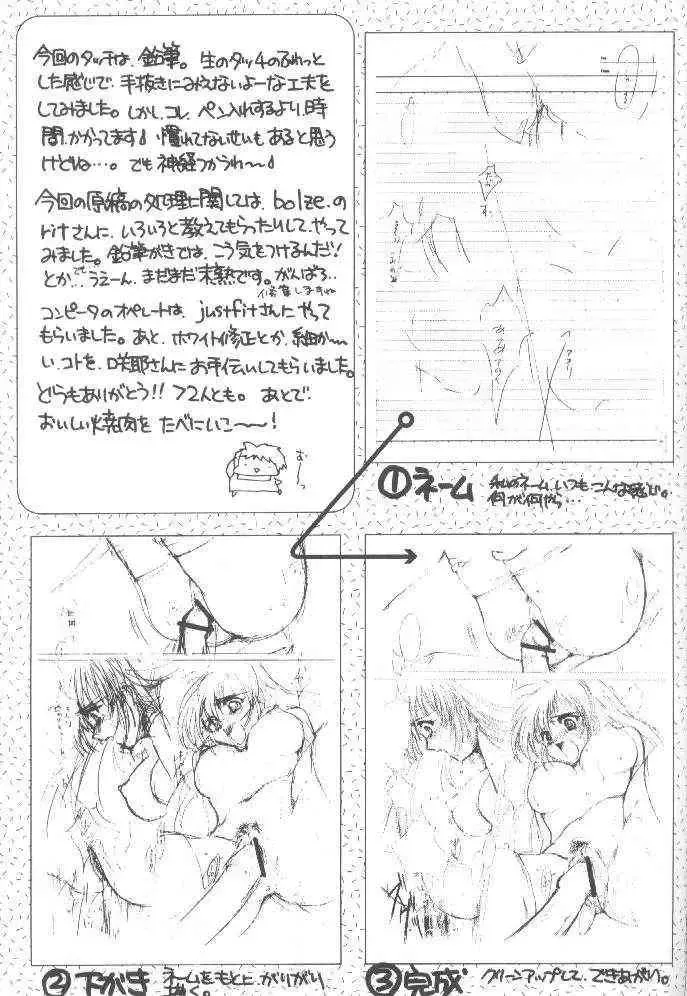 今回のタッチは、鉛筆。生のタッチのふわっと
した感じで、手抜きにみえないよーな工夫を
してみました。しかし、コレ、ペン入れするより、時
間、かかってます♪ 慣れてないせいも あると思う
けどね…。でも 神経つかうわ〜♪
今回の原稿の処理に関しては、bolze.の
ritさんに、いろいろと教えてもらったりして、やって
みました。鉛筆がきでは、こう気をつけるんだ!
とか…。うえーん、まだまだ未熟です。がんばろ…
修業しますね
コンピータのオペレートは、justfitさんにやって
もらいました。あと、ホワイト修正とか、細か〜
い、コトを、咲耶さんにお手伝いしてもらいました。
どうもありがとう!! フ2人とも。 あとで、
おいしい焼肉を たべにいこ〜〜!
お〜っ
①ネーム
私のネーム、いつも こんな感じ。
何が何やら…
②下がき
ネームをもとに、がりがり
描く。
③完成
クリーンアップして、できあがい。